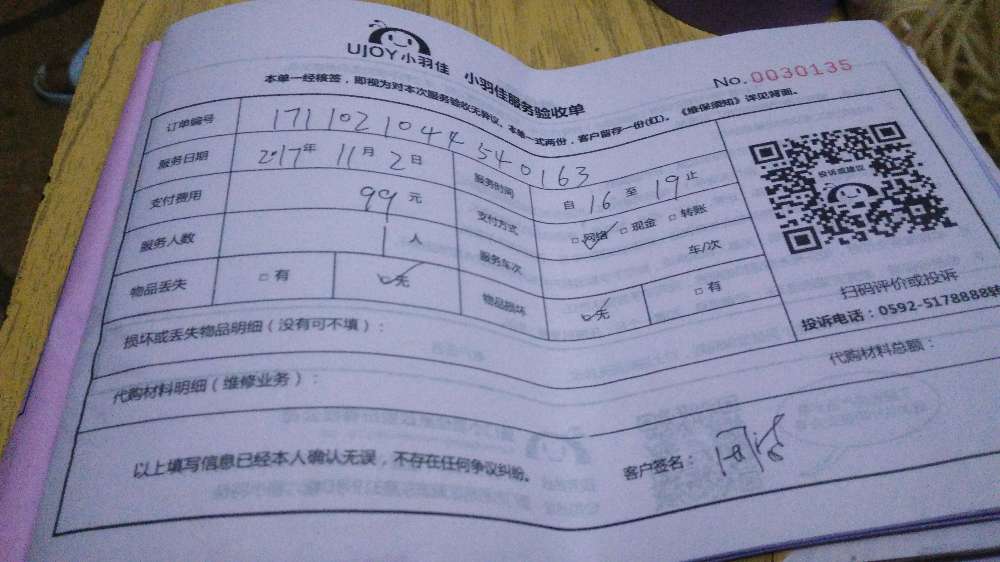 UJOY小羽佳 小羽佳服务验收单
No.0030135
本单一经核签，即视为对本次服务验收无异议。本单一式两份，客户留存一份(红)。《维保须知》详见背面。
订单编号 171102104454 0163
服务日期 2017年 11月 2日 服务时间 自 16 至 19 止
支付费用 99 元 支付方式 □网络 □现金 □转账
服务人数 1 人 服务车次 车/次
物品丢失 □有 □无 物品损坏 □无 □有
投诉或建议
扫码评价或投诉
投诉电话：0592-5178888转
损坏或丢失物品明细（没有可不填）：
代购材料明细（维修业务）： 代购材料总额：
以上填写信息已经本人确认无误，不存在任何争议纠纷。 客户签名：